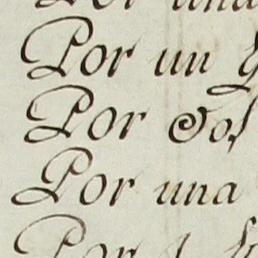 Por una
Por un
Por
Por una
Por